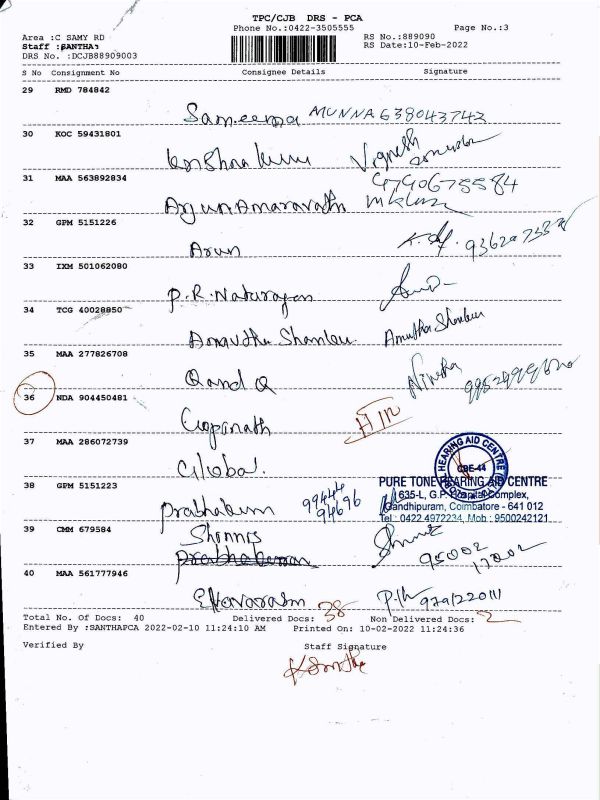 TPC/CJB DRS - PCA
Phone No.:0422-3505555 Page No.:3
Area :C SAMY RD RS No.:889090
Staff :SANTHA RS Date:10-Feb-2022
DRS No. :DCJB88909003
S No Consignment No Consignee Details Signature
29 RMD 784842
Sameema MUNNA 638043743
30 KOC 59431801
Vignesh
31 MAA 563892834
Arjun Amaravathi
32 GPM 5151226
Arun
33 IXM 501062080
P.R. Natarajan
34 TCG 40028850
Amutha Shanbu Amutha Shanbu
35 MAA 277826708
Q and Q Nivetha
36 NDA 904450481
Gopinath
37 MAA 286072739
Global.
HEARING AID CENTRE
CBE-44
38 GPM 5151223
PURE TONE HEARING AID CENTRE
635-L, G.P. Hospital Complex,
Gandhipuram, Coimbatore - 641 012
Tel : 0422 4972234, Mob : 9500242121
Prabhakum 99444 94696
39 CMM 679584
95002
17002
40 MAA 561777946
Total No. Of Docs: 40 Delivered Docs: 38 Non Delivered Docs: 2
Entered By :SANTHAPCA 2022-02-10 11:24:10 AM Printed On: 10-02-2022 11:24:36
Verified By Staff Signature